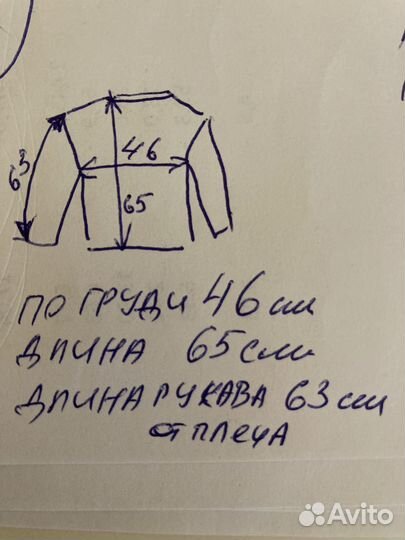 46
63
65
ПО ГРУДИ 46 см
ДЛИНА 65 см
ДЛИНА РУКАВА 63 см
от ПЛЕЧА
Avito